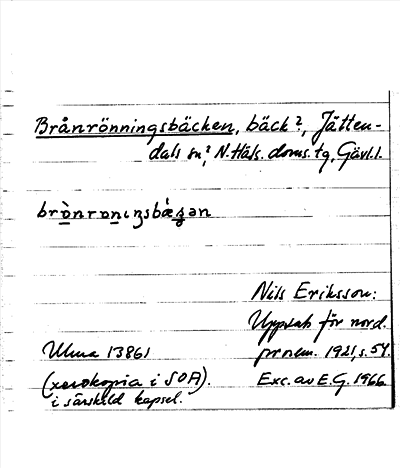 Brånrönningsbäcken, bäck?, Jätten-
dals sn?, N. Häls. doms. tg, Gävl. l.
brònronɩŋsbǽʒən
Nils Eriksson:
Uppsats för nord.
Ulma 13861
prnem. 1921, s. 54.
(xerokopia i SOA).
Exc. av E.G. 1966.
i särskild kapsel.